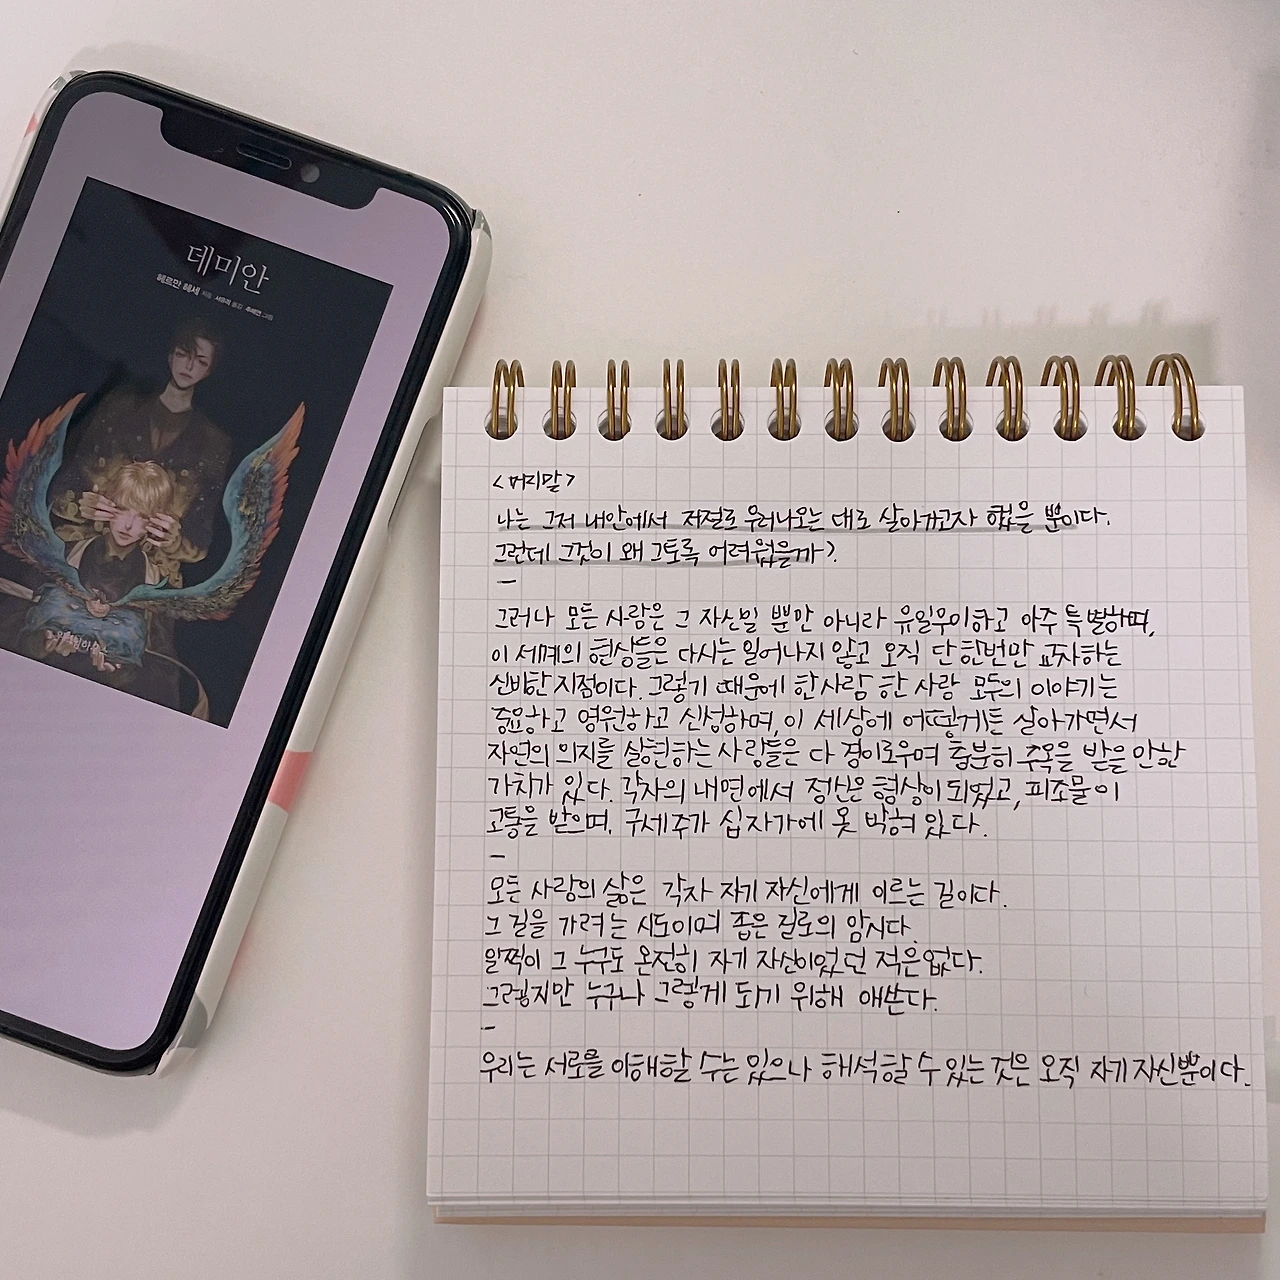 데미안
헤르만 헤세 지음 서유리 옮김 그림
<머리말>
나는 그저 내안에서 저절로 우러나오는 대로 살아가고자 했을 뿐이다.
그런데 그것이 왜 그토록 어려웠을까?
-
그러나 모든 사람은 그 자신일 뿐만 아니라 유일무이하고 아주 특별하며,
이 세계의 형상들은 다시는 일어나지 않고 오직 단 한번만 교차하는
신비한 지점이다. 그렇기 때문에 한사람 한 사람 모두의 이야기는
중요하고 영원하고 신성하며, 이 세상에 어떻게든 살아가면서
자연의 의지를 실현하는 사람들은 다 경이로우며 충분히 주목을 받을 만한
가치가 있다. 각자의 내면에서 정신은 형상이 되었고, 피조물이
고통을 받으며, 구세주가 십자가에 못 박혀 있다.
-
모든 사람의 삶은 각자 자기 자신에게 이르는 길이다.
그 길을 가려는 시도이며 좁은 길로의 암시다.
일찍이 그 누구도 온전히 자기 자신이었던 적은 없다.
그렇지만 누구나 그렇게 되기 위해 애쓴다.
-
우리는 서로를 이해할 수는 있으나 해석할 수 있는 것은 오직 자기 자신뿐이다.